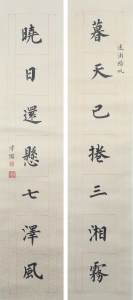 暮天已捲三湘霧
曉日還懸七澤風